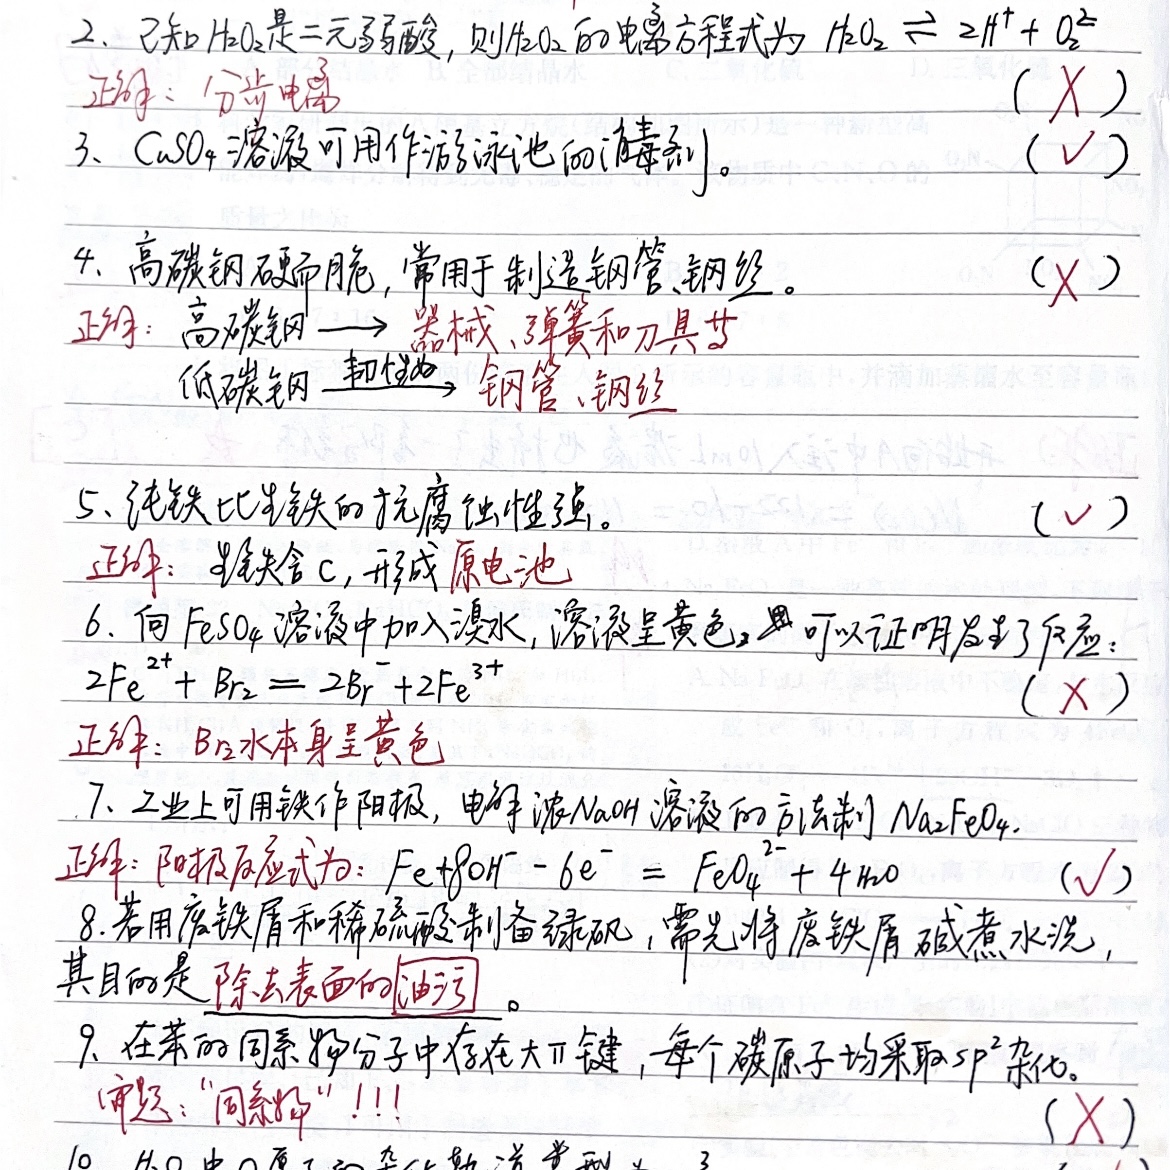 2、已知H₂O₂是二元弱酸，则H₂O₂的电离方程式为 H₂O₂ ⇌ 2H⁺ + O₂²⁻
正解：分步电离 (X)
3、CuSO₄溶液可用作游泳池的消毒剂。 (√)
4、高碳钢硬而脆，常用于制造钢管、钢丝。 (X)
正解：高碳钢 → 器械、弹簧和刀具等
低碳钢 韧性好→ 钢管、钢丝
5、纯铁比生铁的抗腐蚀性强。 (√)
正解：生铁含C，形成原电池
6、向FeSO₄溶液中加入溴水，溶液呈黄色，可以证明发生了反应：
2Fe²⁺ + Br₂ = 2Br⁻ + 2Fe³⁺ (X)
正解：Br₂水本身呈黄色
7、工业上可用铁作阳极，电解浓NaOH溶液的方法制Na₂FeO₄.
正解：阳极反应式为：Fe+8OH⁻ - 6e⁻ = FeO₄²⁻ + 4H₂O (√)
8.若用废铁屑和稀硫酸制备绿矾，需先将废铁屑碱煮水洗，
其目的是除去表面的油污。
9、在苯的同系物分子中存在大π键，每个碳原子均采取sp²杂化。
审题："同系物"!!! (X)